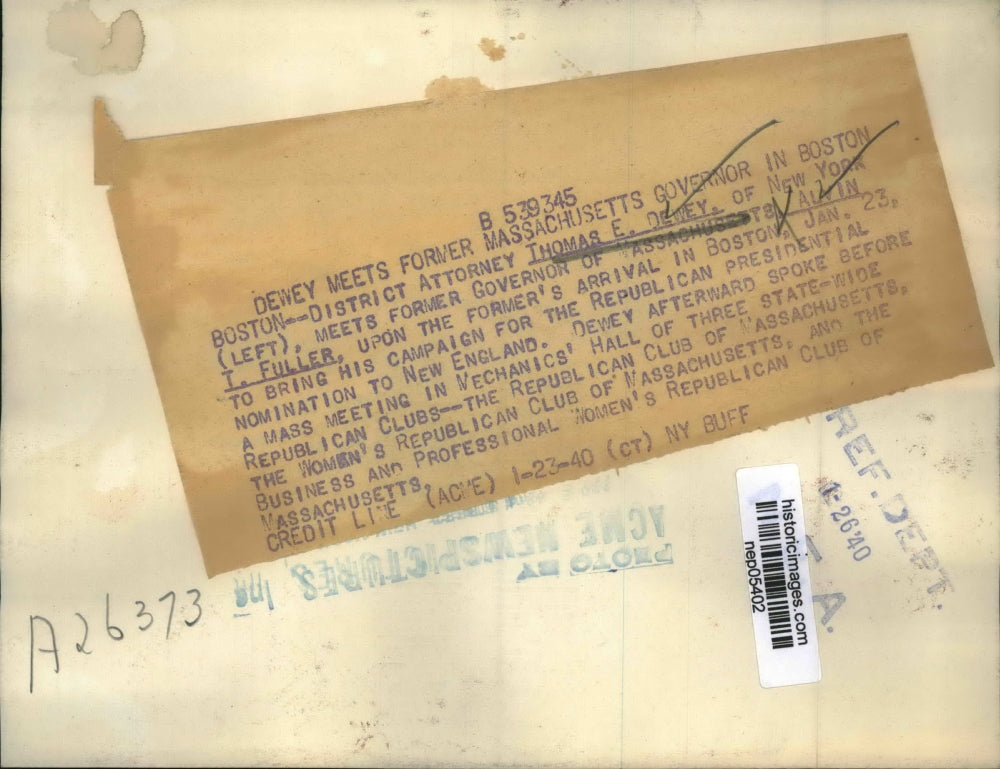 B 539345
DEWEY MEETS FORMER MASSACHUSETTS GOVERNOR IN BOSTON
BOSTON--DISTRICT ATTORNEY THOMAS E. DEWEY, OF NEW YORK
(LEFT), MEETS FORMER GOVERNOR OF MASSACHUSETTS, ALVIN
T. FULLER, UPON THE FORMER'S ARRIVAL IN BOSTON, JAN. 23,
TO BRING HIS CAMPAIGN FOR THE REPUBLICAN PRESIDENTIAL
NOMINATION TO NEW ENGLAND. DEWEY AFTERWARD SPOKE BEFORE
A MASS MEETING IN MECHANICS' HALL OF THREE STATE-WIDE
REPUBLICAN CLUBS--THE REPUBLICAN CLUB OF MASSACHUSETTS,
THE WOMEN'S REPUBLICAN CLUB OF MASSACHUSETTS, AND THE
BUSINESS AND PROFESSIONAL WOMEN'S REPUBLICAN CLUB OF
MASSACHUSETTS.
CREDIT LINE (ACME) 1-23-40 (CT) NY BUFF
PHOTO BY
ACME NEWSPICTURES, Inc
A26373
REF. DEPT.
1-26'40
A.
historicimages.com
nep05402